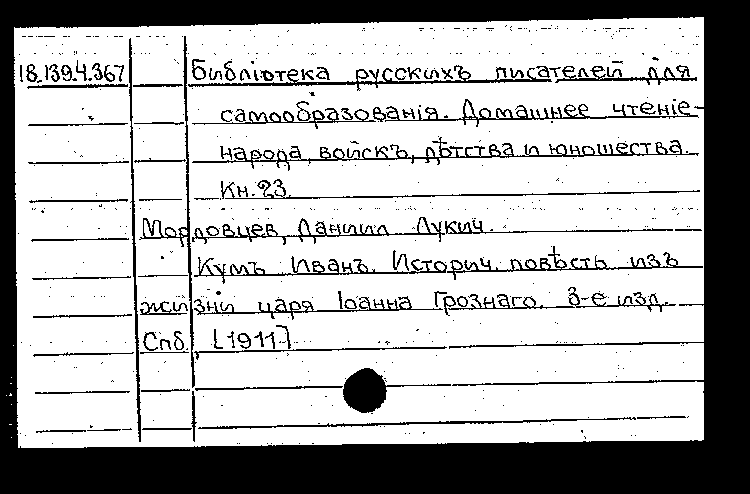 18.139.4.367 Библіотека русскихъ писателей для
самообразованія. Домашнее чтеніе
народа, войскъ, дѣтства и юношества.
Кн. 23.
Мордовцев, Даниил Лукич.
Кумъ Иванъ. Историч. повѣсть изъ
жизни царя Іоанна Грознаго. 3-е изд.
Спб. [1911]